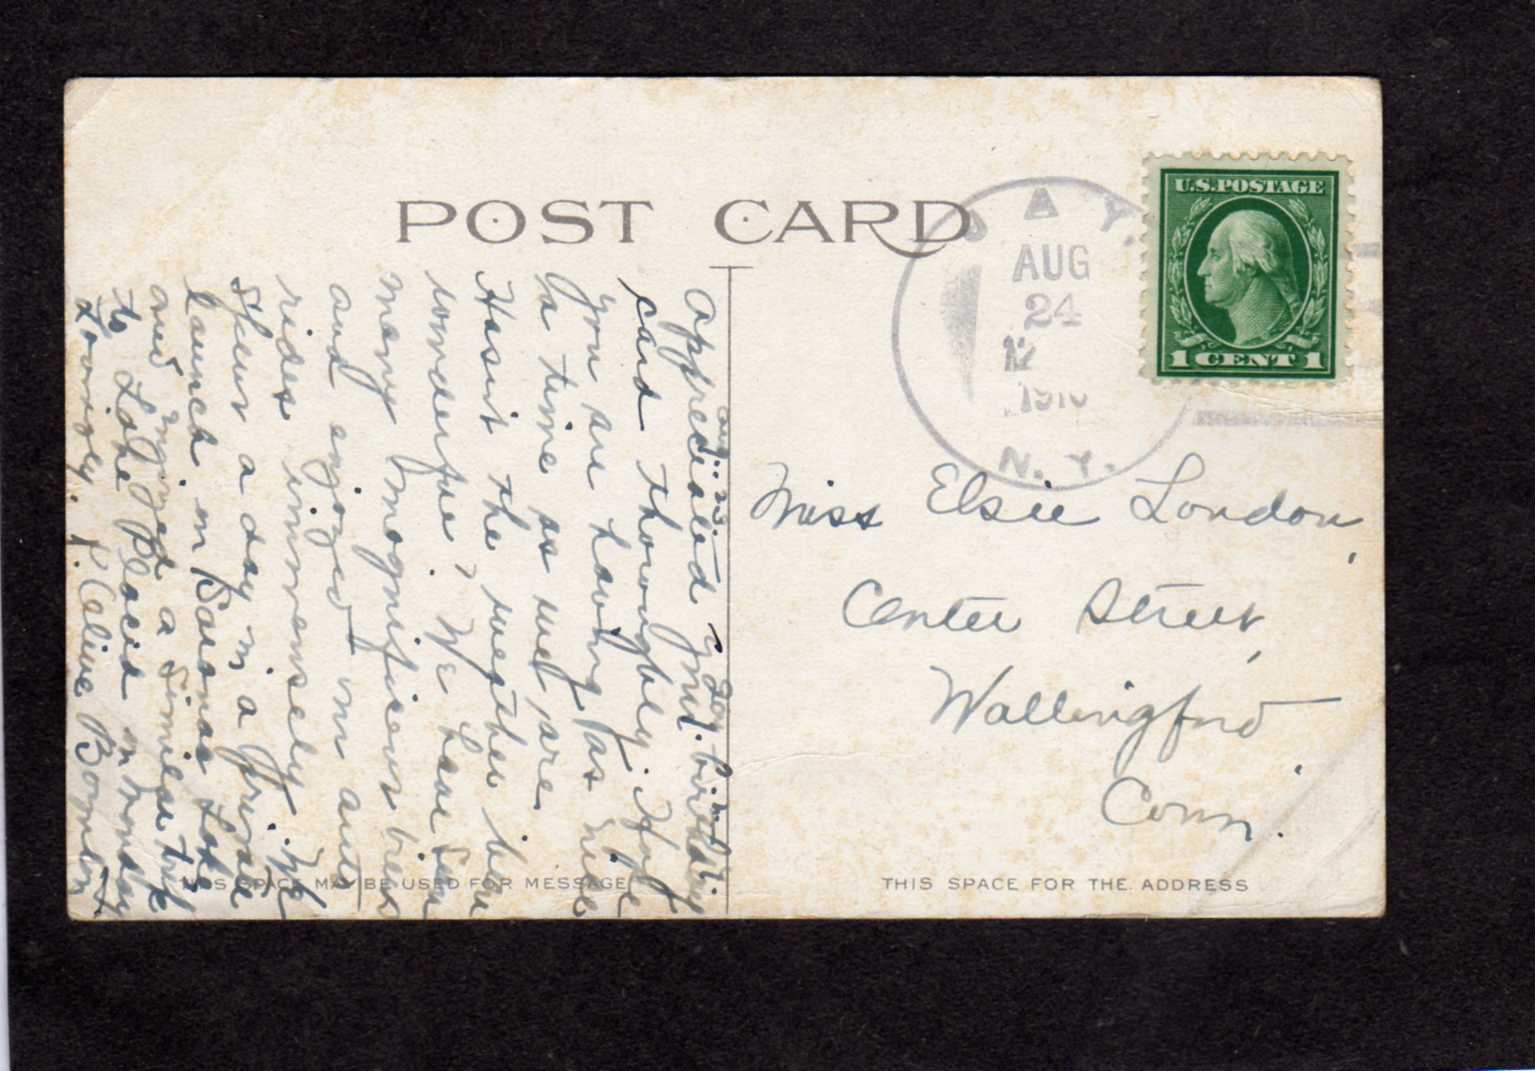 POST CARD
U.S. POSTAGE
1 CENT 1
DAY.
AUG
24
12
N. Y.
Miss Elsie London,
Center Street,
Wallingford
Conn.
THIS SPACE FOR THE ADDRESS
THIS SPACE MAY BE USED FOR MESSAGE
Aug. 23.
Appreciated your birthday
card thoroughly. Hope
you are having as nice
a time as we are.
Hasn't the weather been
wonderful? We have seen
many magnificent views
and enjoyed our auto
rides immensely. We
spent a day in a private
launch on Saranac Lake
and enjoyed a similar trip
to Lake Placid on Monday
Lovingly,
P. Celive